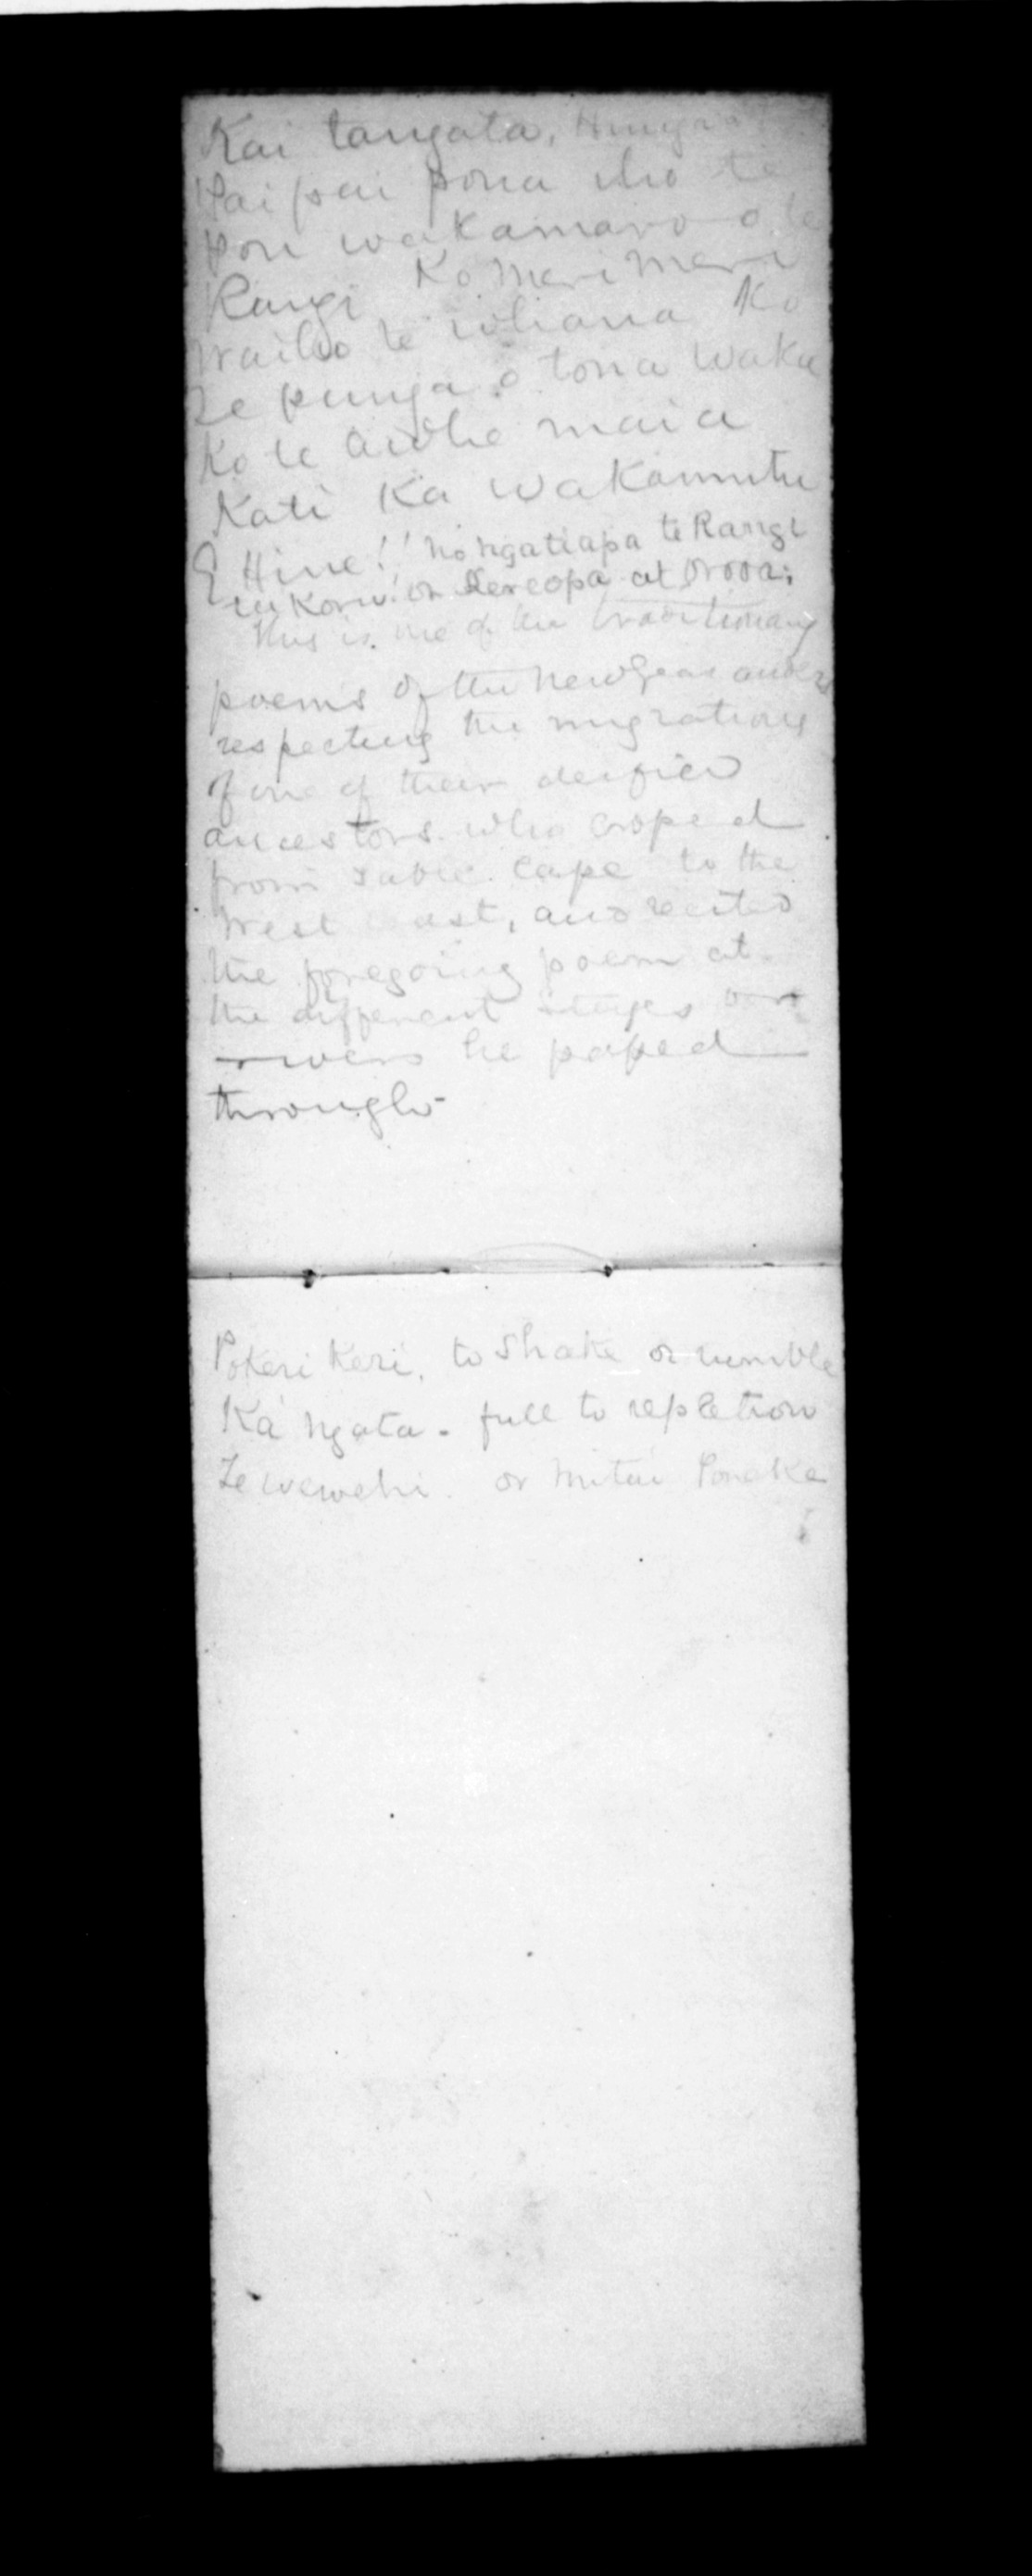 Kai tangata, Hungia
Kai pai pona iho te
pou wakamaro o te
Rangi Ko meri meri
Waiho te whana Ko
Te punga o tona Waka
Ko te awhe maia
Kati Ka Wakamutu
E Hine!! no ngatiapa te Rangi
or Kereopa at Oroa;
This is one of the traditionary
poems of the New Zealanders
respecting the migrations
of one of their deified
ancestors who crossed
from Table Cape to the
West Coast, and recited
the foregoing poem at
the different stages or
rivers he passed
through
Pokeri Keri, to Shake or rumble
Ka ngata - full to repletion
Te wewehi or